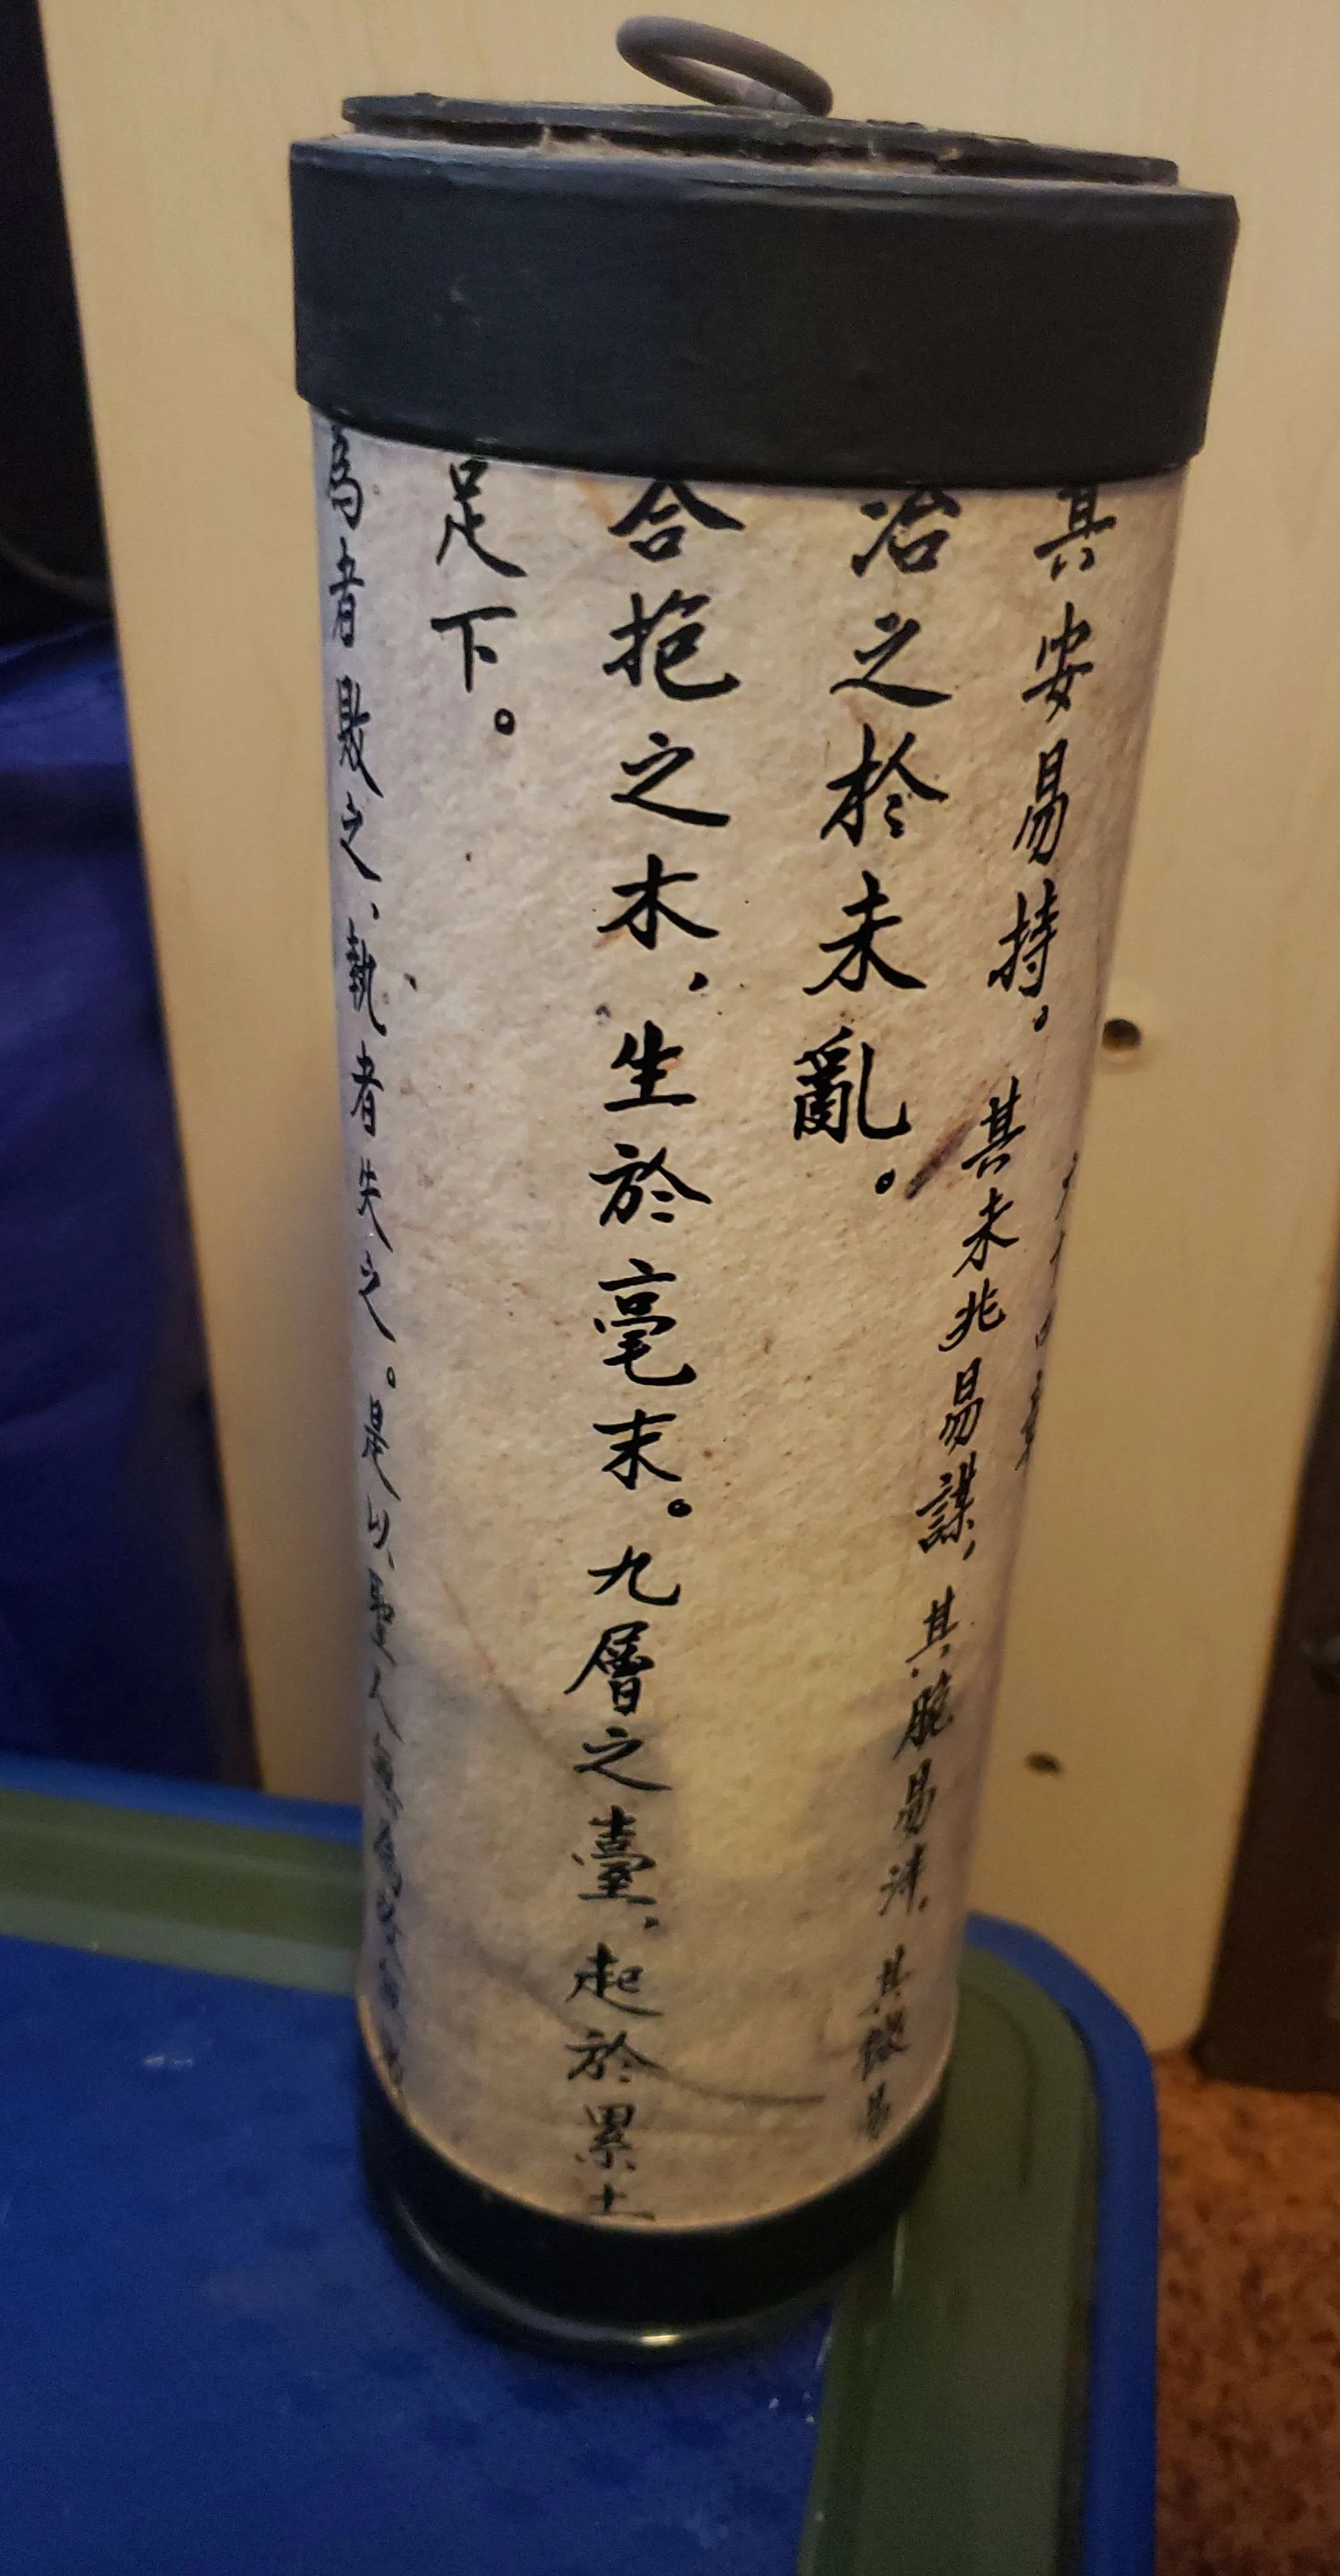 六十四章
其安易持。其未兆易謀，其脆易泮，其微易
治之於未亂。
合抱之木，生於毫末。九層之臺，起於累土
足下。
為者敗之，執者失之。是以聖人無為